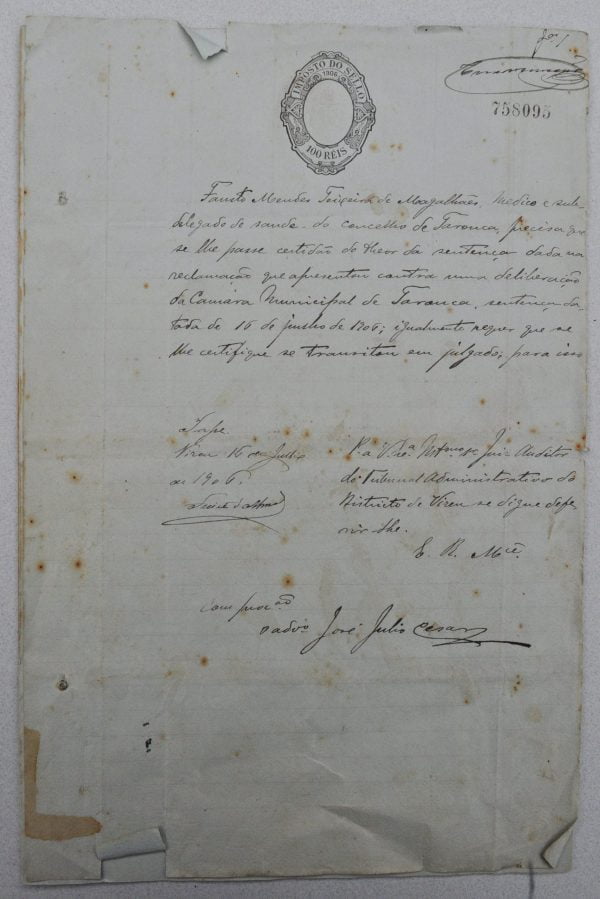 IMPOSTO DO SELLO
1906
100 RÉIS
758095
Fausto Mendes Teixeira de Magalhães, medico e sub-
delegado de saude do concelho de Tarouca, precisa que
se lhe passe certidão do theor da sentença dada na
reclamação que apresentou contra uma deliberação
da Camara Municipal de Tarouca, sentença da-
tada de 16 de junho de 1906; igualmente requer que se
lhe certifique se transitou em julgado, para isso
P. a V. Ex.ª Juiz Auditor
do Tribunal Administrativo do
Districto de Vizeu se digne defe
rir-lhe.
E. R. M.cê
Vizeu 16 de Julho
de 1906.
Com procão
o advo José Julio Cesar